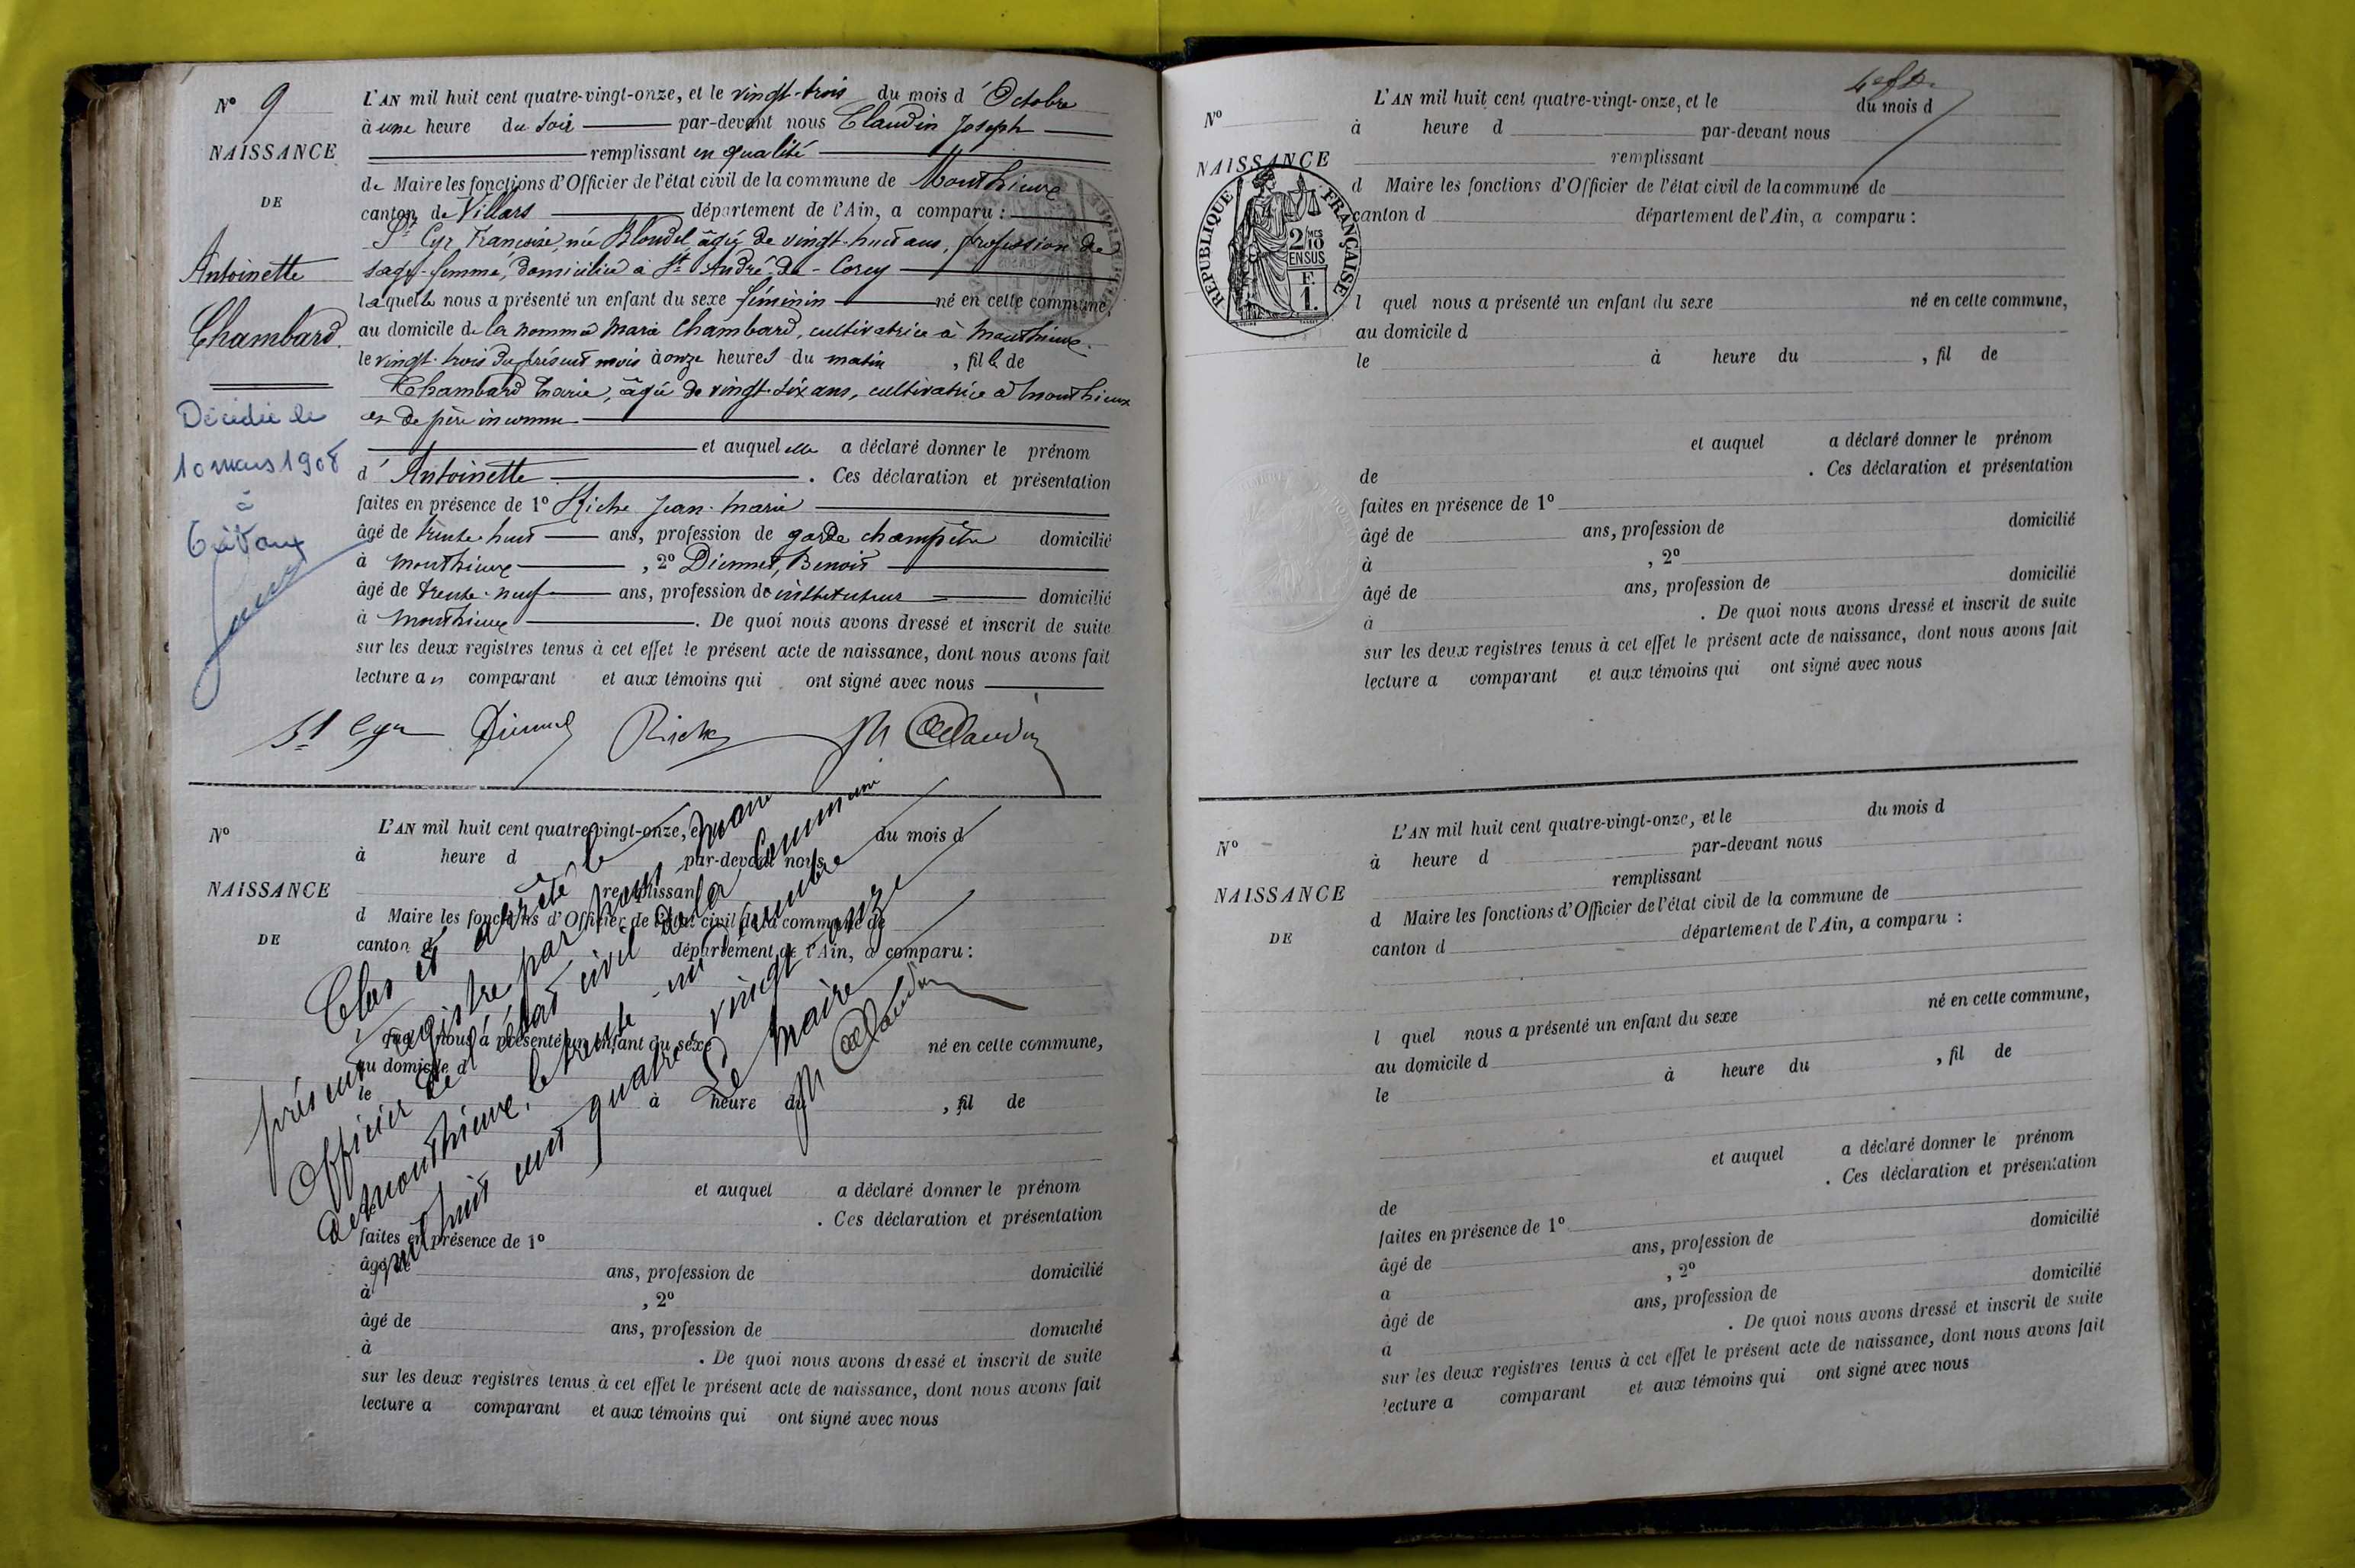 N° 9
NAISSANCE
DE
Antoinette
Chambard.
Décédée le
10 mars 1908
à
L'AN mil huit cent quatre-vingt-onze, et le vingt-trois du mois d'Octobre
à une heure du soir par-devant nous Claudin Joseph
remplissant en qualité
de Maire les fonctions d'Officier de l'état civil de la commune de Monthieux
canton de Villars département de l'Ain, a comparu :
St Cyr Françoise, née Blondel, âgée de vingt-huit ans, profession de
sage-femme, domiciliée à St André-de-Corcy
laquelle nous a présenté un enfant du sexe féminin né en cette commune,
au domicile de la nommée Marie Chambard, cultivatrice à Monthieux.
le vingt-trois du présent mois à onze heures du matin, fille de
Chambard Marie, âgée de vingt-six ans, cultivatrice à Monthieux
et de père inconnu
et auquel elle a déclaré donner le prénom
d'Antoinette. Ces déclaration et présentation
faites en présence de 1° Riche Jean-Marie
âgé de trente-huit ans, profession de garde champêtre domicilié
à Monthieux, 2° Diennet, Benoit
âgé de trente-neuf ans, profession de instituteur domicilié
à Monthieux. De quoi nous avons dressé et inscrit de suite
sur les deux registres tenus à cet effet le présent acte de naissance, dont nous avons fait
lecture a comparant et aux témoins qui ont signé avec nous
St Cyr Diennet Riche J M Claudin
N°
NAISSANCE
DE
L'AN mil huit cent quatre-vingt-onze, et le du mois d
à heure d par-devant nous
remplissant
d Maire les fonctions d'Officier de l'état civil de la commune de
canton d département de l'Ain, a comparu :
l quel nous a présenté un enfant du sexe né en cette commune,
au domicile d
le à heure du , fil de
et auquel a déclaré donner le prénom
. Ces déclaration et présentation
faites en présence de 1°
âgé de ans, profession de domicilié
à , 2°
âgé de ans, profession de domicilié
à . De quoi nous avons dressé et inscrit de suite
sur les deux registres tenus à cet effet le présent acte de naissance, dont nous avons fait
lecture a comparant et aux témoins qui ont signé avec nous
Clos et arrêté le
présent registre par nous Maire
Officier de l'état civil de la Commune
de Monthieux, le trente-un décembre
mil huit cent quatre vingt onze
Le Maire
J M Claudin
N°
NAISSANCE
RÉPUBLIQUE FRANÇAISE
2/10 MES
EN SUS
F.
1.
L'AN mil huit cent quatre-vingt-onze, et le du mois d
à heure d par-devant nous
remplissant
d Maire les fonctions d'Officier de l'état civil de la commune de
canton d département de l'Ain, a comparu :
l quel nous a présenté un enfant du sexe né en cette commune,
au domicile d
le à heure du , fil de
et auquel a déclaré donner le prénom
de . Ces déclaration et présentation
faites en présence de 1°
âgé de ans, profession de domicilié
à , 2°
âgé de ans, profession de domicilié
à . De quoi nous avons dressé et inscrit de suite
sur les deux registres tenus à cet effet le présent acte de naissance, dont nous avons fait
lecture a comparant et aux témoins qui ont signé avec nous
N°
NAISSANCE
DE
L'AN mil huit cent quatre-vingt-onze, et le du mois d
à heure d par-devant nous
remplissant
d Maire les fonctions d'Officier de l'état civil de la commune de
canton d département de l'Ain, a comparu :
l quel nous a présenté un enfant du sexe né en cette commune,
au domicile d
le à heure du , fil de
et auquel a déclaré donner le prénom
de . Ces déclaration et présentation
faites en présence de 1°
âgé de ans, profession de domicilié
a , 2°
âgé de ans, profession de domicilié
à . De quoi nous avons dressé et inscrit de suite
sur les deux registres tenus à cet effet le présent acte de naissance, dont nous avons fait
lecture a comparant et aux témoins qui ont signé avec nous